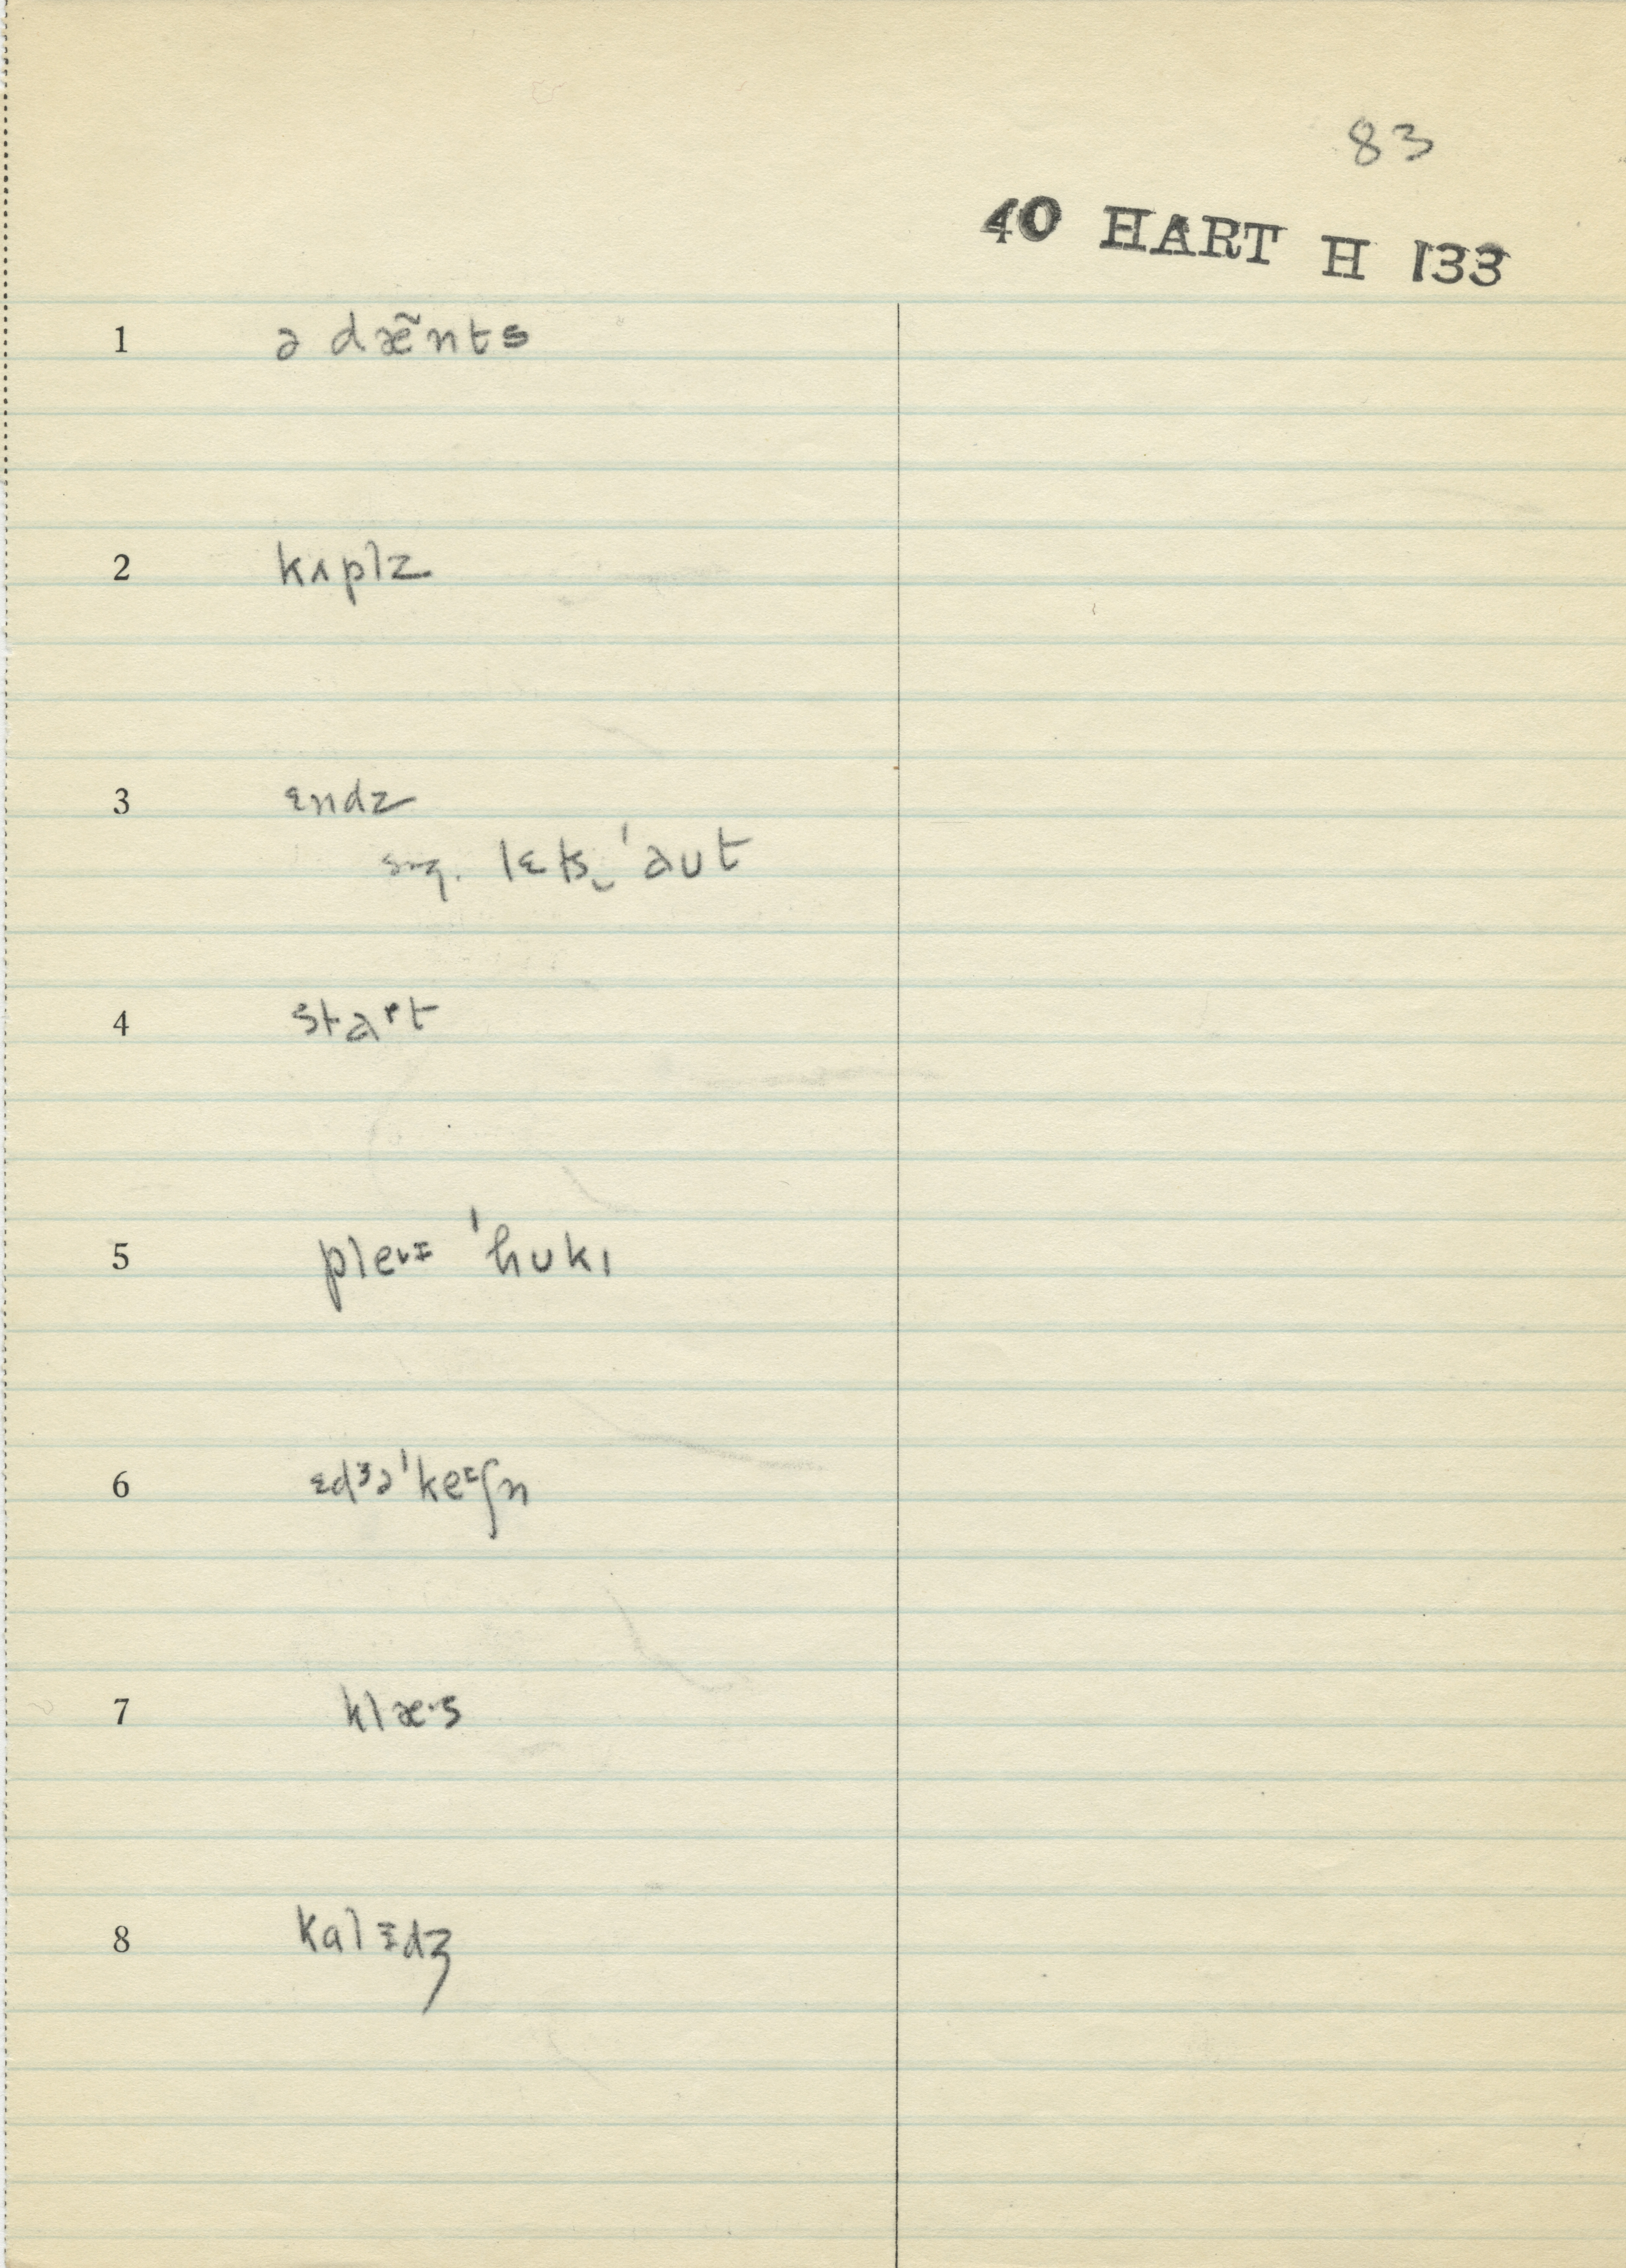 83
40 HART H 133
1 ə dæ̃nts
2 kʌplz
3 ɛndz
sng. lɛts‿ˈaʊt
4 staʳt
5 pleᶦ ˈhʊkɪ
6 ɛdᶾəˈkeᶦʃn
7 klæ·s
8 kalɪdʒ